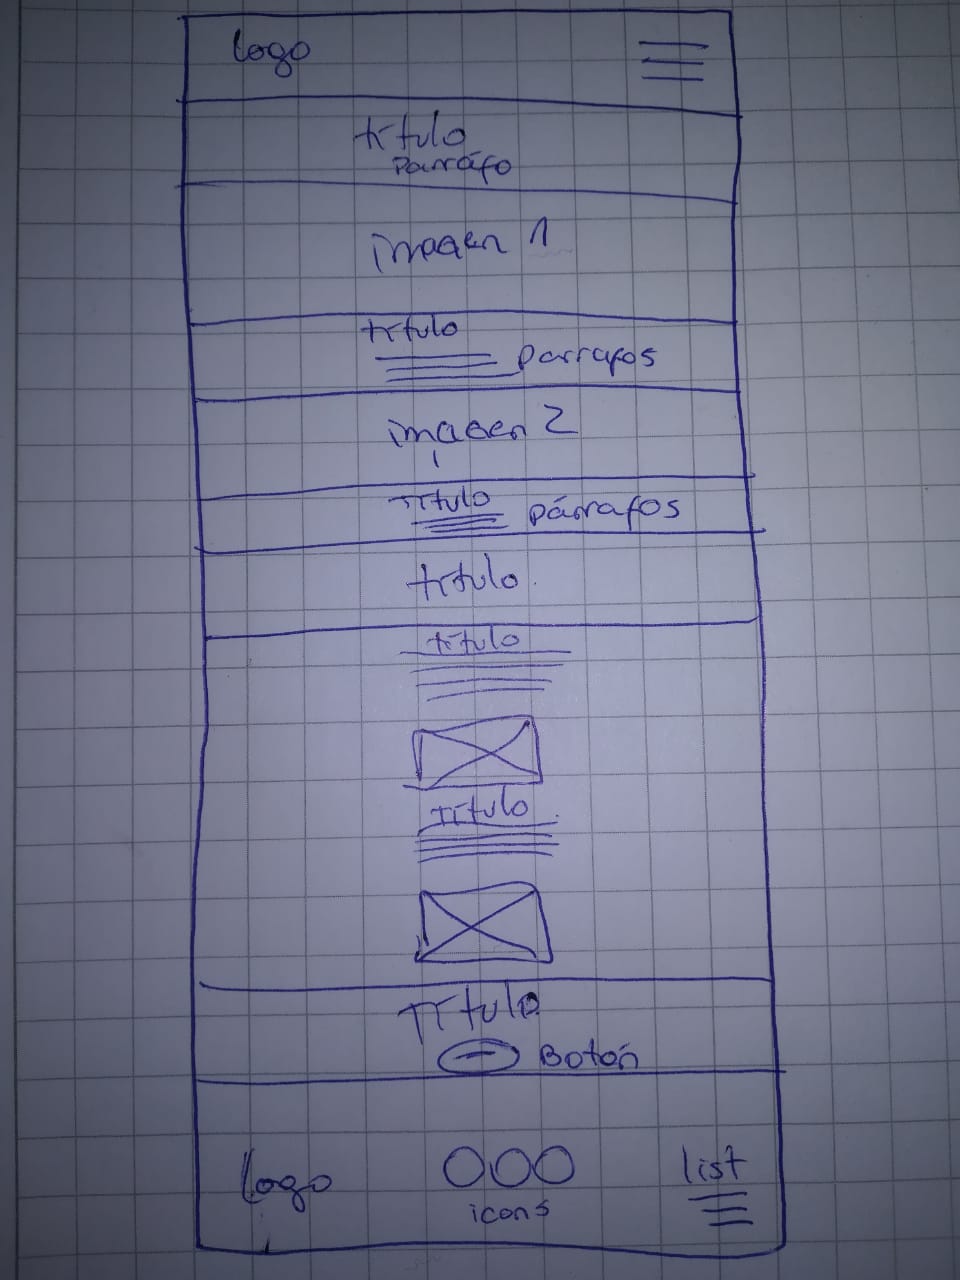 logo
título
Parráfo
imagen 1
título
Parrafos
imagen 2
Título
párrafos
título
título
Título
Título
Botón
logo
icons
list